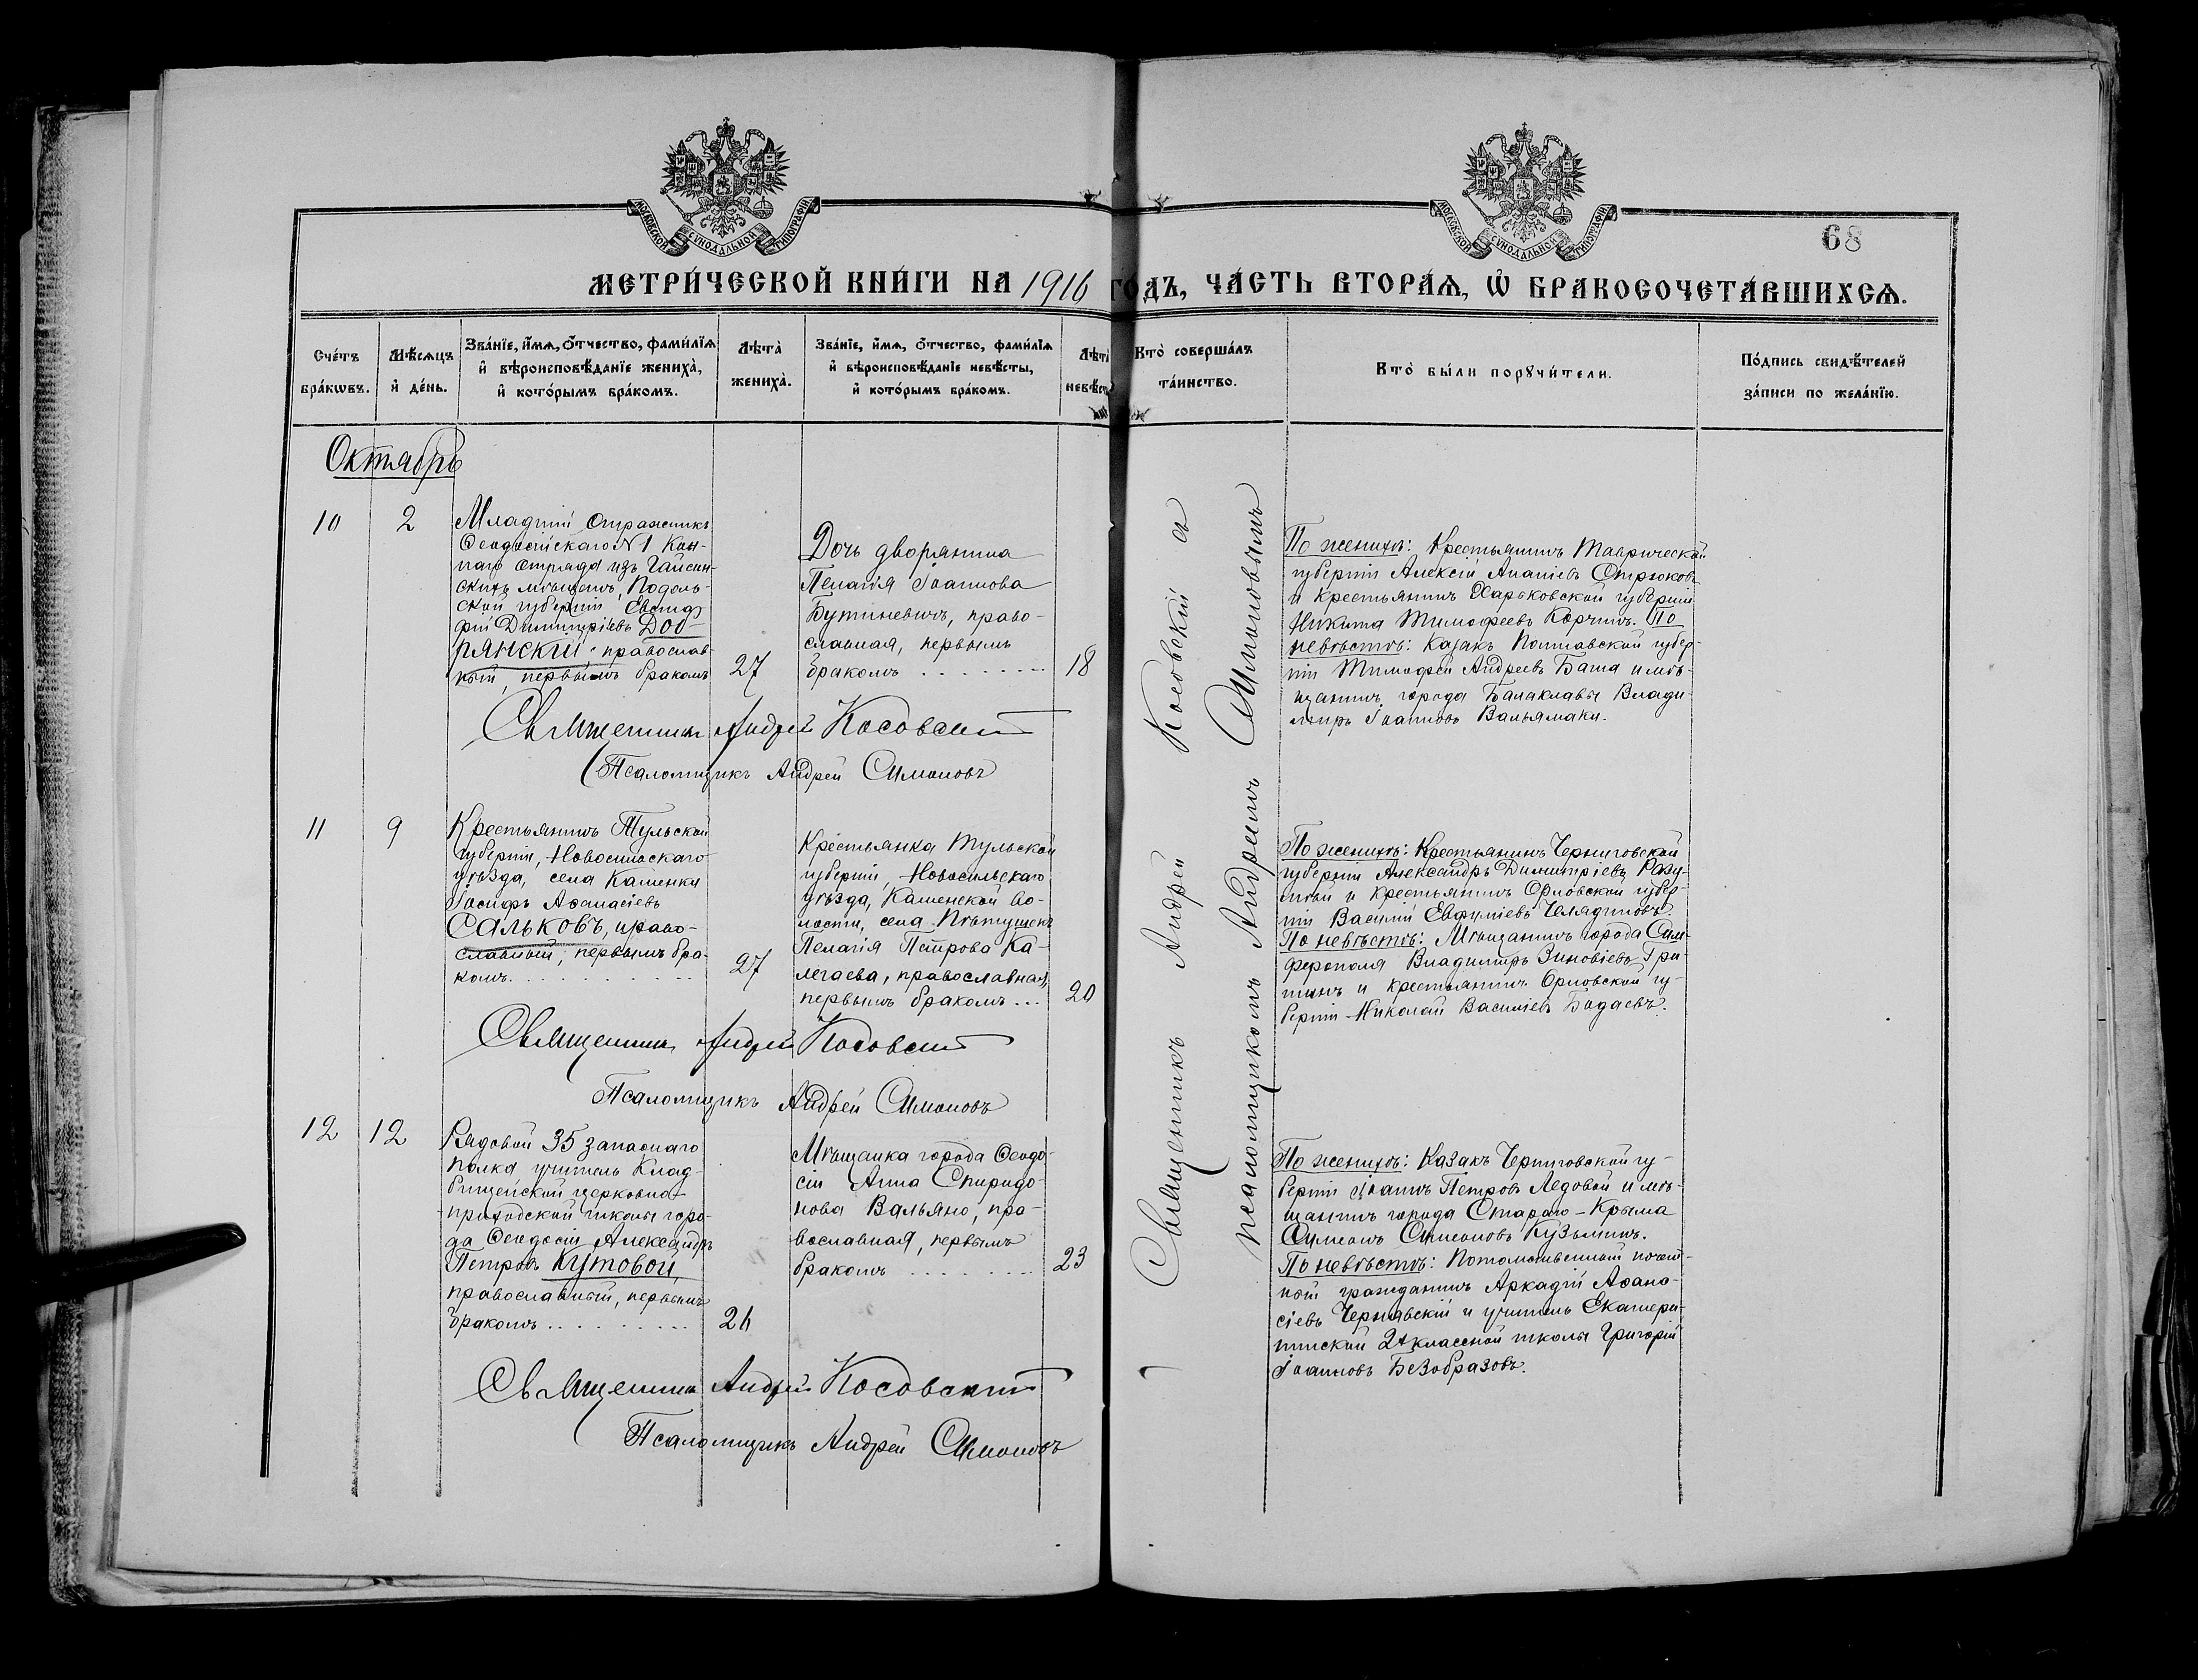 МОСКОВСКОЙ СѴНОДАЛЬНОЙ ТИПОГРАФІИ
МОСКОВСКОЙ СѴНОДАЛЬНОЙ ТИПОГРАФІИ
68
МЕТРИ́ЧЕСКОЙ КНИ́ГИ НА 1916 ГОДЪ, ЧА́СТЬ ВТОРА́Ѧ, Ѡ҆ БРАКОСОЧЕТА́ВШИХСѦ.
Сче́тъ
бра́кѡвъ.
Мѣ́сѧцъ
и҆ де́нь.
Зва́нїе, и҆́мѧ, ѻ҆́тчество, фами́лїѧ
и҆ вѣроисповѣ́данїе жениха̀,
и҆ кото́рымъ бра́комъ.
Лѣта̀
жениха̀.
Зва́нїе, и҆́мѧ, ѻ҆́тчество, фами́лїѧ
и҆ вѣроисповѣ́данїе невѣ́сты,
и҆ кото́рымъ бра́комъ.
Лѣта̀
невѣ́сты
Кто̀ соверша́лъ
та́инство.
Кто̀ бы́ли порꙋчи́тели.
По́дпись свидѣ́телей
за́писи по жела́нїю.
Октябрь
10
2
Младшій Стражникъ
Ѳеодосійскаго №1 Кон-
наго отряда изъ Гайсин-
скихъ мѣщанъ, Подоль-
ской губерніи Евста‌ф
фій Димитріевъ Доб-
рянскій, православ-
ный, первымъ бракомъ
27
Дочь дворянина
Пелагія Іоаннова
Бутиневичъ, право-
славная, первымъ
бракомъ
18
По женихѣ: Крестьянинъ Таврической
губерніи Алексій Ананіевъ Стрюковъ
и крестьянинъ Харьковской губерніи
Никита Тимофеевъ Корчинъ. По
невѣстѣ: Казакъ Полтавской губер-
ніи Тимофей Андреевъ Баша и мѣ-
щанинъ города Балаклавы Влади-
міръ Іоанновъ Вальямаки.
Священникъ Андрей Косовскій
Псаломщикъ Андрей Симоновъ
11
9
Крестьянинъ Тульской
губерніи, Новосильскаго
уѣзда, села Каменки
Іосифъ Аѳанасіевъ
Сальковъ, право-
славный, первымъ бра-
комъ
27
Крестьянка Тульской
губерніи, Новосильскаго
уѣзда, Каменской во-
лости, села Пѣтушекъ
Пелагія Петрова Ка-
легаева, православная,
первымъ бракомъ
20
По женихѣ: Крестьянинъ Черниговской
губерніи Александръ Димитріевъ Разу-
и крестьянинъ Орловской губер-
ніи Василій Евфиміевъ Челядиновъ.
По невѣстѣ: Мѣщанинъ города Сим-
ферополя Владимиръ Зиновіевъ Гри-
шинъ и крестьянинъ Орловской гу-
берніи Николай Василіевъ Бодаевъ.
Священникъ Андрей Косовскій
Псаломщикъ Андрей Симоновъ
12
12
Рядовой 35 запаснаго
полка, учитель Клад-
бищенской церковно-
приходской школы горо-
да Ѳеодосіи Александръ
Петровъ Кутовой,
православный, первымъ
бракомъ
26
Мѣщанка города Ѳеодо-
сіи Анна Спиридо-
нова Вальяно, пра-
вославная, первымъ
бракомъ
23
По женихѣ: Казакъ Черниговской гу-
берніи Іоаннъ Петровъ Ледовой и мѣ-
щанинъ города Стараго-Крыма
Симеонъ Симеоновъ Кузьминъ.
По невѣстѣ: Потомственный почет-
ный гражданинъ Аркадій Аѳана-
сіевъ Чернявскій и учитель Екатери-
нинской 2хклассной школы Григорій
Іоанновъ Безобразовъ.
Священникъ Андрей Косовскій
Псаломщикъ Андрей Симоновъ
Священникъ Андрей Косовскій съ
псаломщикомъ Андреемъ Симоновымъ